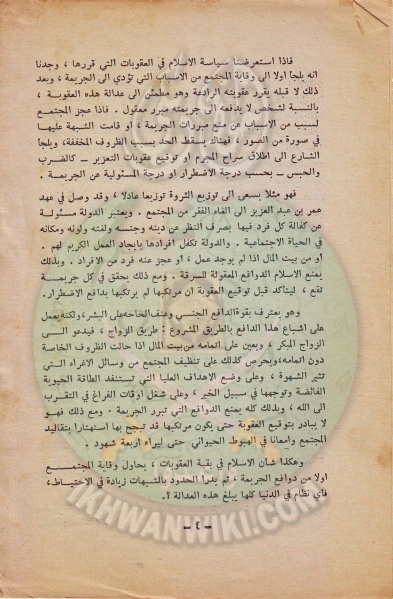 فاذا استعرضنا سياسة الاسلام في العقوبات التي قررها ، وجدنا
انه يلجأ اولا الى وقاية المجتمع من الاسباب التي تؤدي الى الجريمة ، وبعد
ذلك لا قبله يقرر عقوبته الرادعة وهو مطمئن الى عدالة هذه العقوبة ،
بالنسبة لشخص لا يدفعه الى جريمته مبرر معقول . فاذا عجز المجتمع
لسبب من الاسباب عن منع مبررات الجريمة ، او قامت الشبهة عليها
في صورة من الصور ، فهناك يسقط الحد بسبب الظروف المخففة، ويلجأ
الشارع الى اطلاق سراح المجرم او توقيع عقوبات التعزير ــ كالضرب
والحبس ــ بحسب درجة الاضطرار او درجة المسئولية عن الجريمة .
فهو مثلا يسعى الى توزيع الثروة توزيعا عادلا ، وقد وصل في عهد
عمر بن عبد العزيز الى الغاء الفقر من المجتمع . ويعتبر الدولة مسئولة
عن كفالة كل فرد فيها بصرف النظر عن دينه وجنسه ولغته ولونه ومكانه
في الحياة الاجتماعية . والدولة تكفل افرادها بايجاد العمل الكريم لهم .
او من بيت المال اذا لم يوجد عمل ، او عجز عنه فرد من الافراد . وبذلك
يمنع الاسلام الدوافع المعقولة للسرقة . ومع ذلك يحقق في كل جريمة
تقع ، ليتأكد قبل توقيع العقوبة ان مرتكبها لم يرتكبها بدافع الاضطرار.
وهو يعترف بقوةالدافع الجنسي وعنف الحاحه على البشر،ولكنه يعمل
على اشباع هذا الدافع بالطريق المشروع : طريق الزواج ، فيدعو الى
الزواج المبكر ، ويعين على اتمامه من بيت المال اذا حالت الظروف الخاصة
دون اتمامه،ويحرص كذلك على تنظيف المجتمع من وسائل الاغراء التي
تثير الشهوة ، وعلى وضع الاهداف العليا التي تستنفد الطاقة الحيوية
الفائضة وتوجهها في سبيل الخير ، وعلى شغل اوقات الفراغ في التقرب
الى الله ، وبذلك كله يمنع الدوافع التي تبرر الجريمة . ومع ذلك فهو
لا يبادر بتوقيع العقوبة حتى يكون مرتكبها قد تبجح بها استهتارا بتقاليد
المجتمع وامعانا في الهبوط الحيواني حتى ليراه اربعة شهود .
وهكذا شأن الاسلام في بقية العقوبات ، يحاول وقاية المجتمع
اولا من دوافع الجريمة ، ثم يدرأ الحدود بالشبهات زيادة في الاحتياط،
فأي نظام في الدنيا كلها يبلغ هذه العدالة ؟.
ــ ٤ ــ
IKHWANWIKI.COM